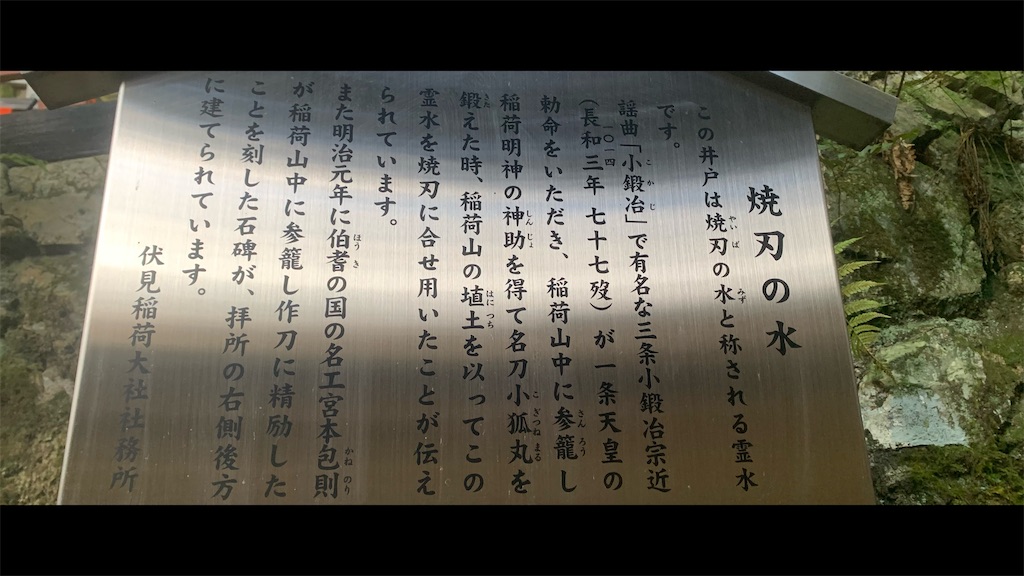 焼刃の水
この井戸は焼刃の水と称される霊水
です。
謡曲「小鍛冶」で有名な三条小鍛冶宗近
（長和三年 七十七歿）が一条天皇の
勅命をいただき、稲荷山中に参籠し
稲荷明神の神助を得て名刀小狐丸を
鍛えた時、稲荷山の埴土を以ってこの
霊水を焼刃に合せ用いたことが伝え
られています。
また明治元年に伯耆の国の名工宮本包則
が稲荷山中に参籠し作刀に精励した
ことを刻した石碑が、拝所の右側後方
に建てられています。
伏見稲荷大社社務所